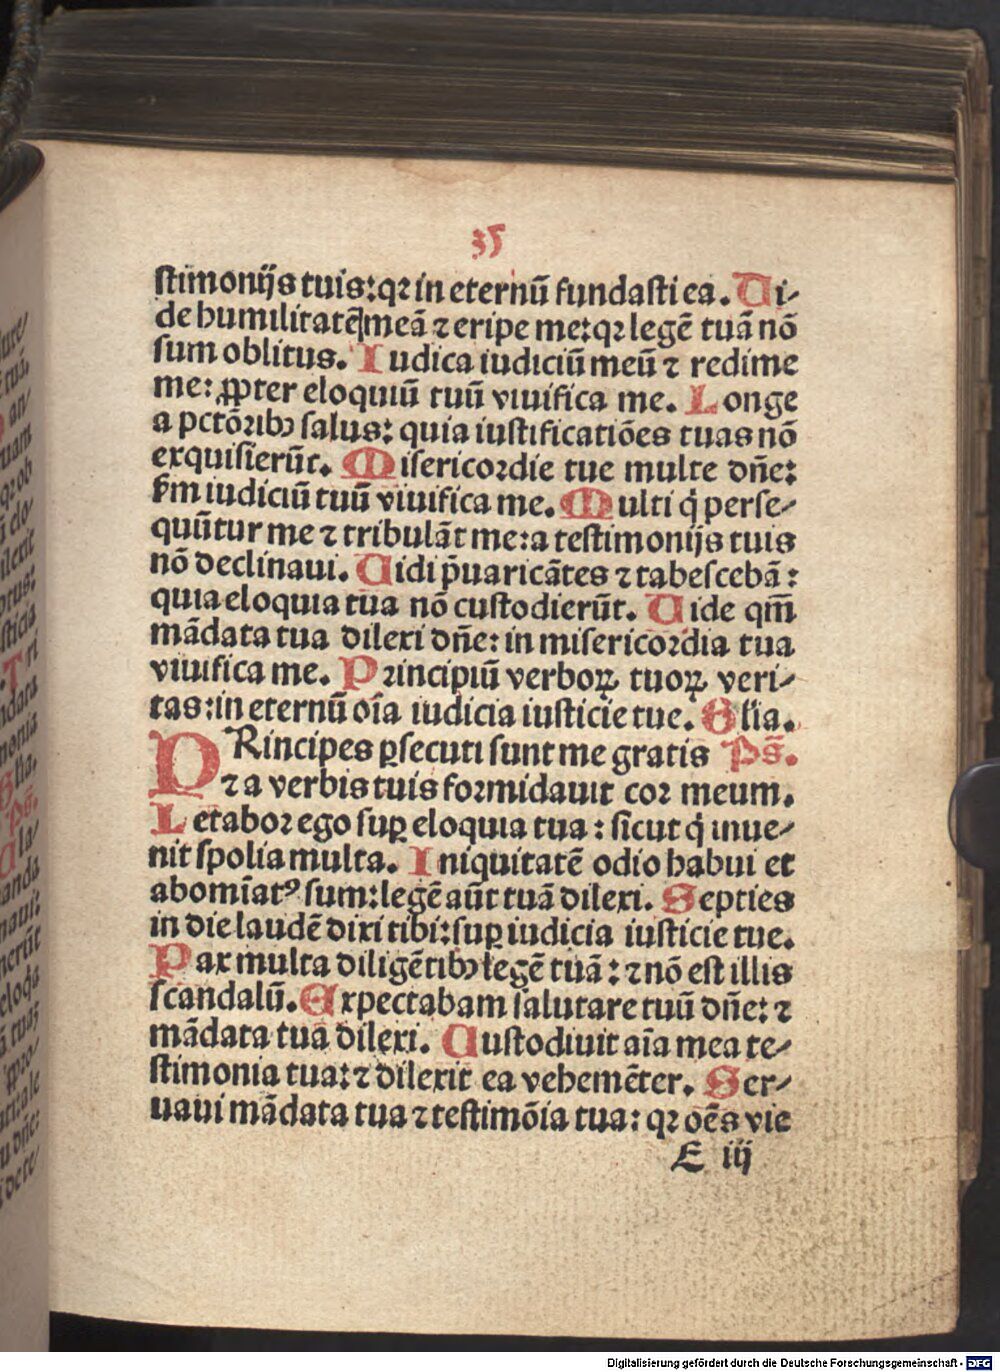 35
stimonijs tuis:qꝛ in eternū fundasti ea. Ui-
de humilitatē meā ⁊ eripe me:qꝛ legē tuā nō
sum oblitus. Iudica iudiciū meū ⁊ redime
me: ꝓpter eloquiū tuū viuifica me. Longe
a pctōꝛibꝫ salus: quia iustificatiōes tuas nō
exquisierūt. Misericoꝛdie tue multe dñe:
ẜm iudiciū tuū viuifica me. Multi q̇ perse-
quūtur me ⁊ tribulāt me:a testimonijs tuis
nō declinaui. Uidi p̄uaricātes ⁊ tabescebā:
quia eloquia tua nō custodierūt. Uide qm̄
mādata tua dilexi dñe: in misericoꝛdia tua
viuifica me. Pꝛincipiū verboꝝ tuoꝝ veri-
tas:in eternū oīa iudicia iusticie tue. Glia.
PRincipes ꝑsecuti sunt me gratis Ps̄.
⁊ a verbis tuis foꝛmidauit coꝛ meum.
Letaboꝛ ego suꝑ eloquia tua: sicut q̇ inue-
nit spolia multa. Iniquitatē odio habui et
abomīatꝰ sum:legē aūt tuā dilexi. Septies
in die laudē dixi tibi:suꝑ iudicia iusticie tue.
Pax multa diligētibꝫ legē tuā: ⁊ nō est illis
scandalū. Expectabam salutare tuū dñe: ⁊
mādata tua dilexi. Custodiuit aīa mea te-
stimonia tua: ⁊ dilexit ea vehemēter. Ser-
uaui mādata tua ⁊ testimōia tua: qꝛ oēs vie
E iij
Digitalisierung gefördert durch die Deutsche Forschungsgemeinschaft - DFG